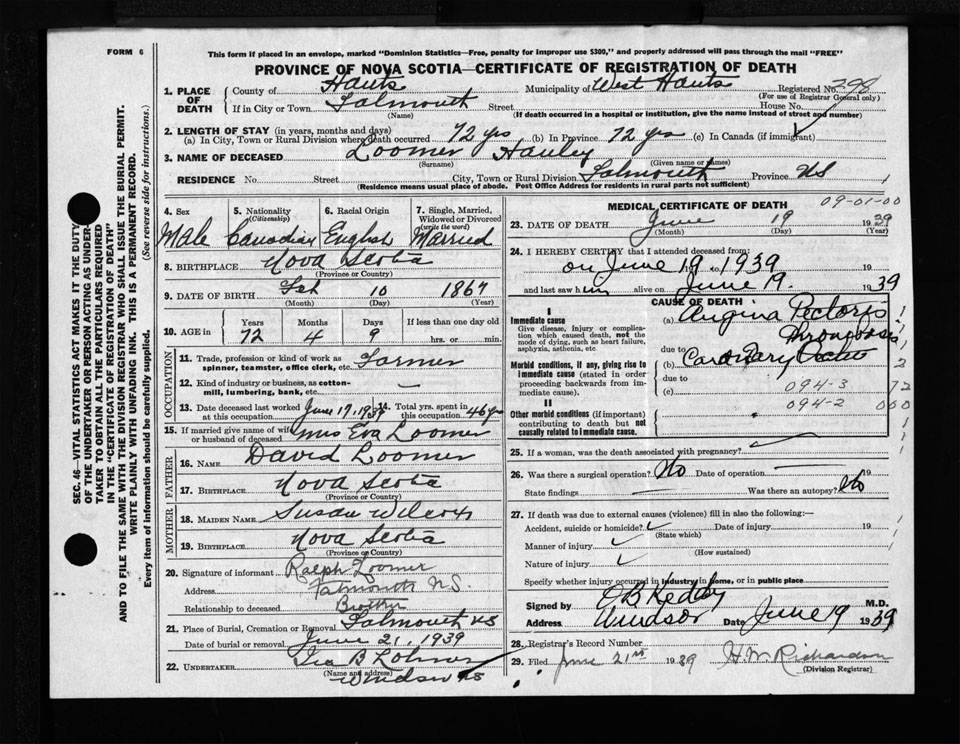 FORM 6
This form if placed in an envelope, marked "Dominion Statistics—Free, penalty for improper use $300," and properly addressed will pass through the mail "FREE"
PROVINCE OF NOVA SCOTIA—CERTIFICATE OF REGISTRATION OF DEATH
SEC. 46—VITAL STATISTICS ACT MAKES IT THE DUTY
OF THE UNDERTAKER OR PERSON ACTING AS UNDER-
TAKER TO OBTAIN ALL THE PARTICULARS REQUIRED
IN THE "CERTIFICATE OF REGISTRATION OF DEATH"
AND TO FILE THE SAME WITH THE DIVISION REGISTRAR WHO SHALL ISSUE THE BURIAL PERMIT.
WRITE PLAINLY WITH UNFADING INK. THIS IS A PERMANENT RECORD.
Every item of information should be carefully supplied. (See reverse side for instructions.)
1. PLACE OF DEATH County of Hants Municipality of West Hants Registered No. 298
(For use of Registrar General only)
If in City or Town Falmouth Street House No.
(Name) (If death occurred in a hospital or institution, give the name instead of street and number)
2. LENGTH OF STAY (in years, months and days)
(a) In City, Town or Rural Division where death occurred 72 yrs (b) In Province 72 yrs (c) In Canada (if immigrant)
3. NAME OF DECEASED Loomer Hanley
(Surname) (Given name or names)
RESIDENCE No. Street City, Town or Rural Division Falmouth Province NS
(Residence means usual place of abode. Post Office Address for residents in rural parts not sufficient)
4. Sex Male
5. Nationality (Citizenship) Canadian
6. Racial Origin English
7. Single, Married, Widowed or Divorced (write the word) Married
8. BIRTHPLACE Nova Scotia
(Province or Country)
9. DATE OF BIRTH Feb 10 1867
(Month) (Day) (Year)
10. AGE in Years 72 Months 4 Days 9 If less than one day old hrs. or min.
OCCUPATION
11. Trade, profession or kind of work as spinner, teamster, office clerk, etc. Farmer
12. Kind of industry or business, as cotton-mill, lumbering, bank, etc. —
13. Date deceased last worked at this occupation June 17, 1939 14. Total yrs. spent in this occupation 46 yrs
15. If married give name of wife or husband of deceased Mrs Eva Loomer
FATHER
16. NAME David Loomer
17. BIRTHPLACE Nova Scotia
(Province or Country)
MOTHER
18. MAIDEN NAME Susan Wilcox
19. BIRTHPLACE Nova Scotia
(Province or Country)
20. Signature of informant Ralph Loomer
Address Falmouth N.S.
Relationship to deceased Brother
21. Place of Burial, Cremation or Removal Falmouth NS
Date of burial or removal June 21, 1939
22. UNDERTAKER
(Name and address) Windsor NS
MEDICAL CERTIFICATE OF DEATH 09-01-00
23. DATE OF DEATH June 19 1939
(Month) (Day) (Year)
24. I HEREBY CERTIFY that I attended deceased from:
on June 19 to 1939 19
and last saw him alive on June 19. 1939
CAUSE OF DEATH
I
Immediate cause
Give disease, injury or complication which caused death, not the mode of dying, such as heart failure, asphyxia, asthenia, etc.
(a) Angina Pectoris
Thrombosis
due to
Morbid conditions, if any, giving rise to immediate cause (stated in order proceeding backwards from immediate cause)
(b) Coronary
due to
(c)
094-3
72
094-2
000
II
Other morbid conditions (if important) contributing to death but not causally related to immediate cause.
25. If a woman, was the death associated with pregnancy?
26. Was there a surgical operation? No Date of operation — 19
State findings — Was there an autopsy? No
27. If death was due to external causes (violence) fill in also the following:—
Accident, suicide or homicide? Date of injury 19
(State which)
Manner of injury
(How sustained)
Nature of injury
Specify whether injury occurred in industry in home, or in public place
Signed by C B Keddy M.D.
Address Windsor Date June 19 1939
28. Registrar's Record Number
29. Filed June 21st 1939 H. M. Richardson
(Division Registrar)